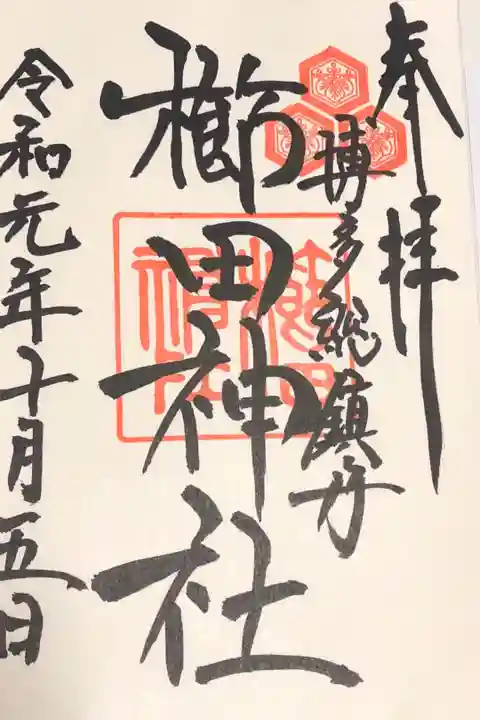 奉拝
博多総鎮守
櫛田神社
令和元年十月五日